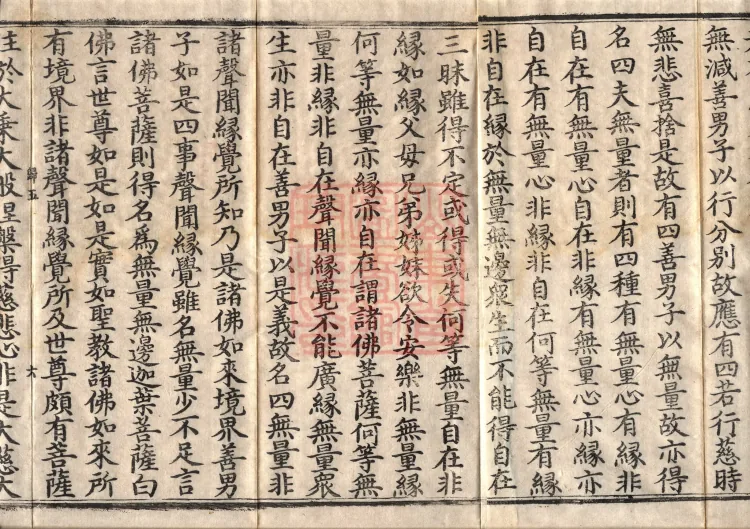 無減善男子以行分別故應有四若行慈時
無悲喜捨是故有四善男子以無量故亦得
名四夫無量者則有四種有無量心有緣非
自在有無量心自在非緣有無量心亦緣亦
自在有無量心非緣非自在何等無量有緣
非自在緣於無量無邊衆生而不能得自在
三昧雖得不定或得或失何等無量自在非
緣如緣父母兄弟姊妹欲令安樂非無量緣
何等無量亦緣亦自在謂諸佛菩薩何等無
量非緣非自在聲聞緣覺不能廣緣無量衆
生亦非自在善男子以是義故名四無量非
諸聲聞緣覺所知乃是諸佛如來境界善男
子如是四事聲聞緣覺雖名無量少不足言
諸佛菩薩則得名爲無量無邊迦葉菩薩白
佛言世尊如是如是實如聖教諸佛如來所
有境界非諸聲聞緣覺所及世尊頗有菩薩
歸五 六
住於大乘大般涅槃得慈悲心非是大慈大